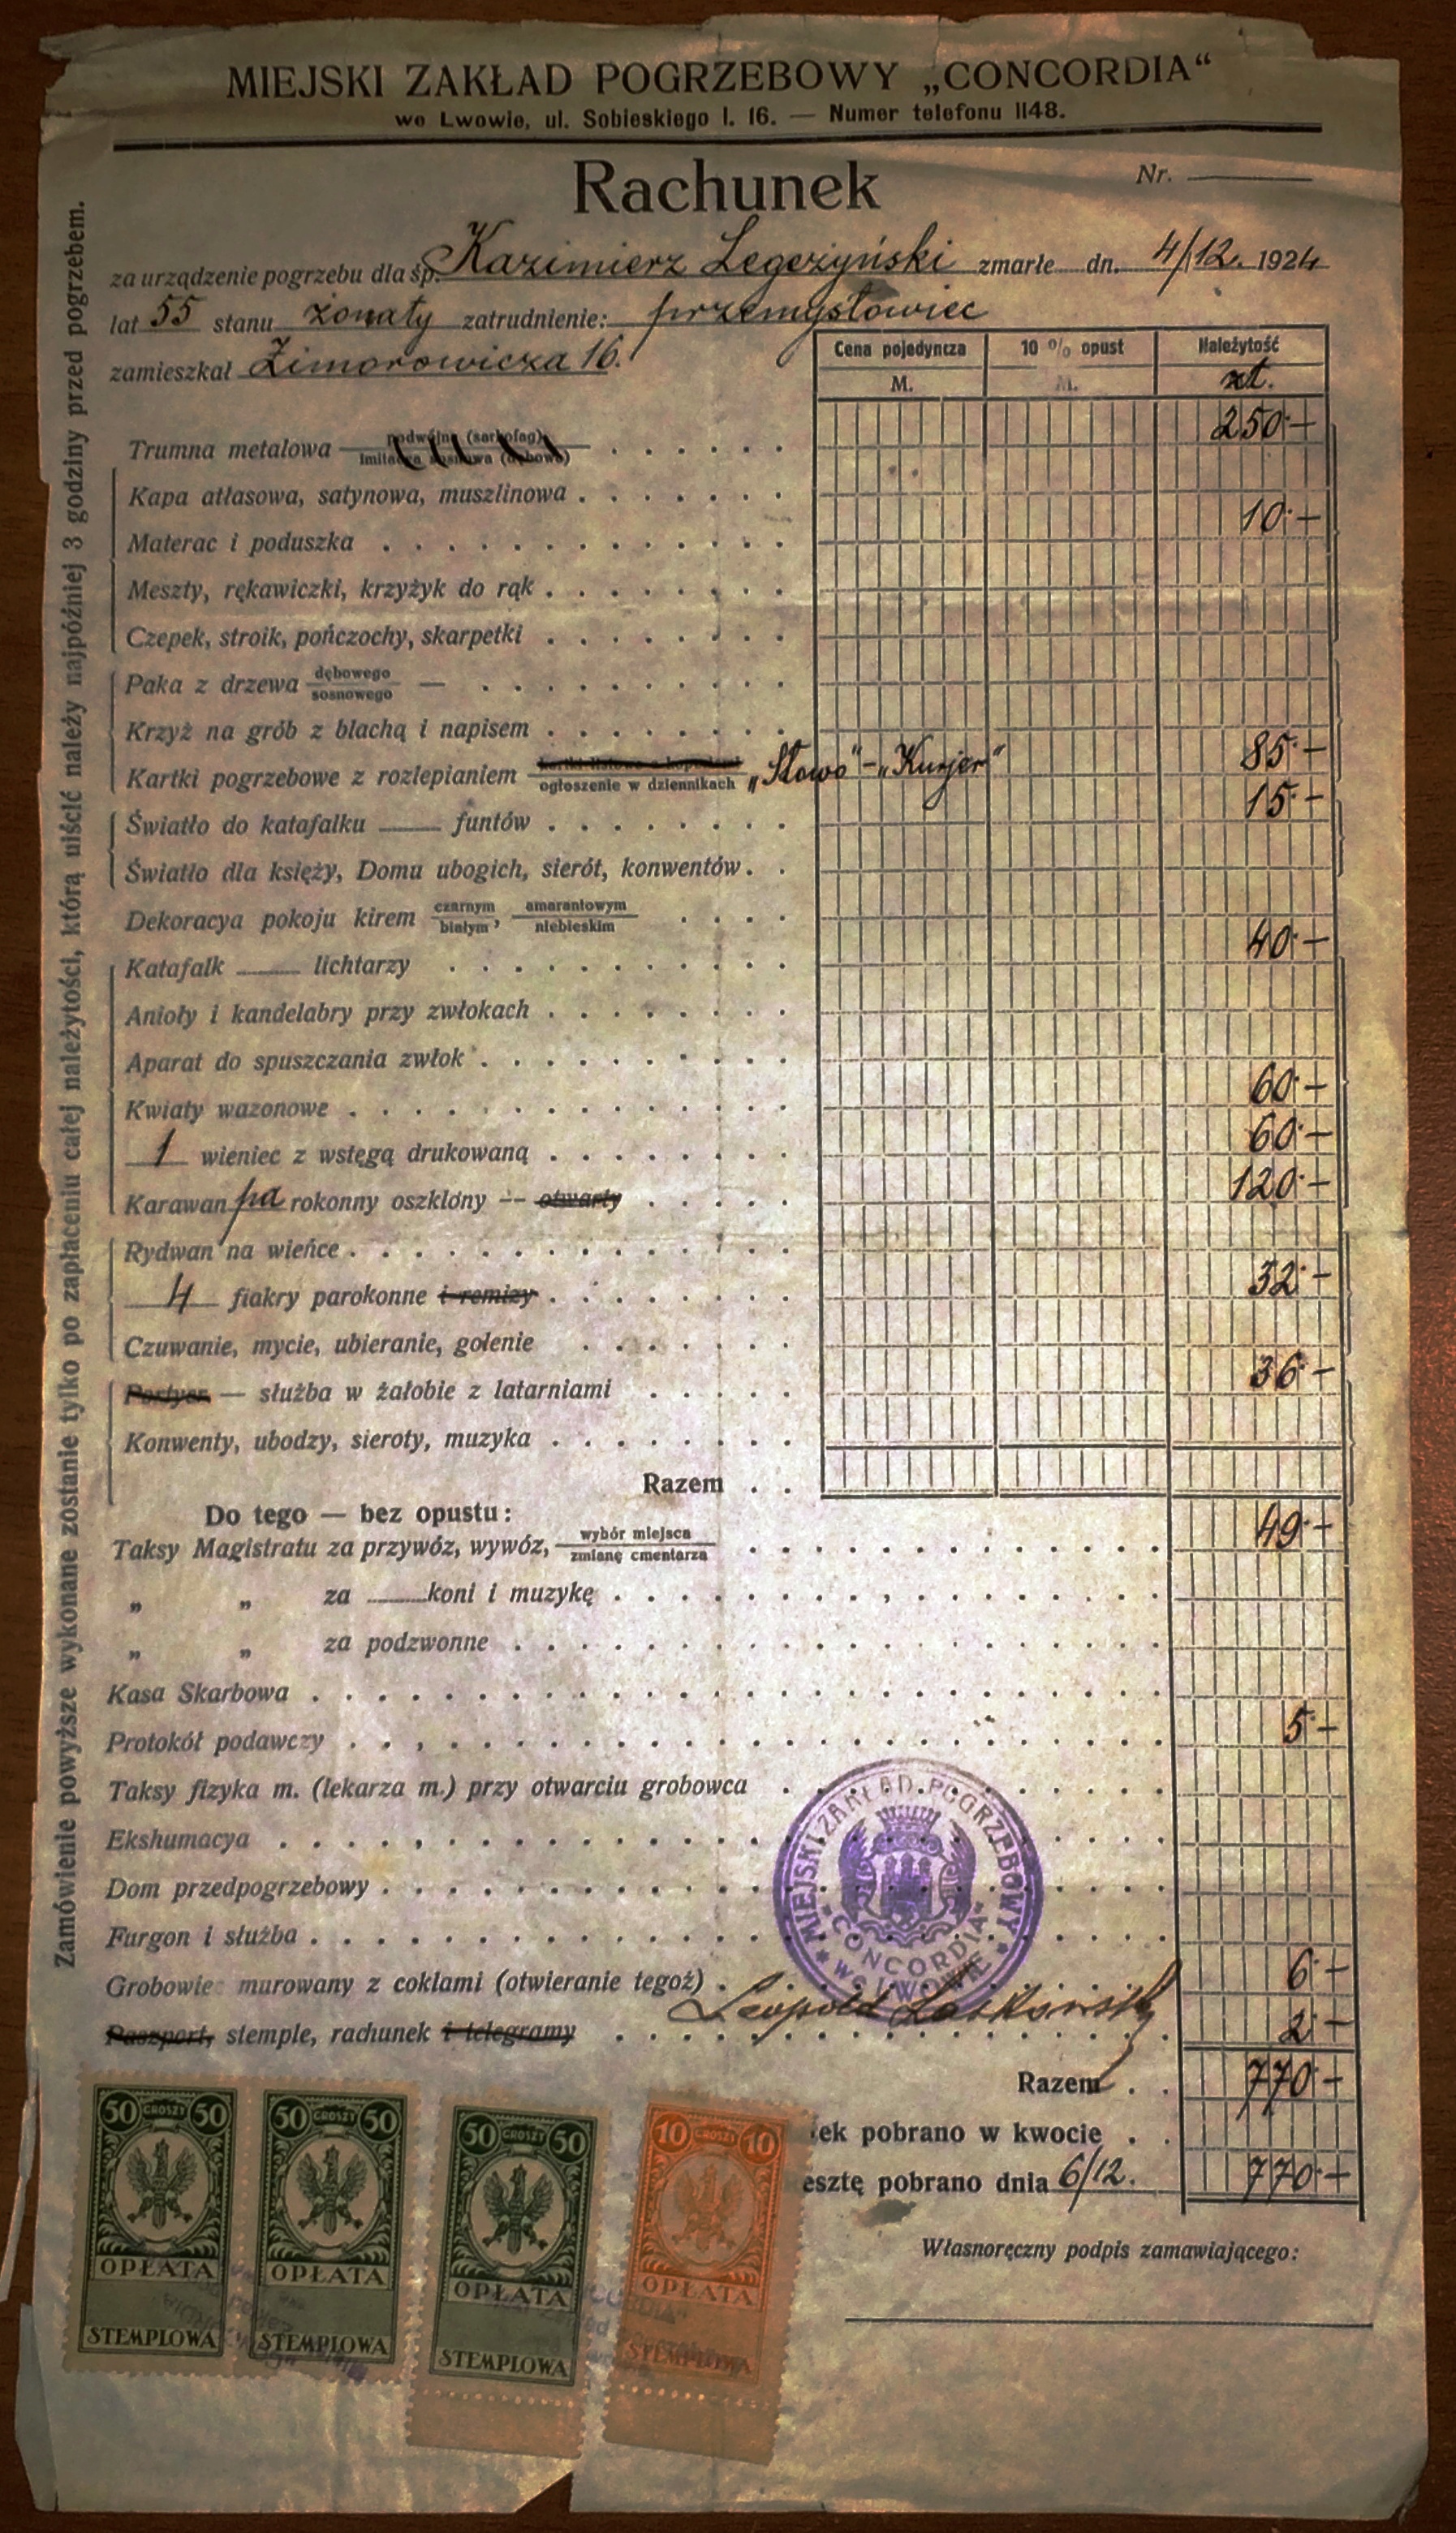 MIEJSKI ZAKŁAD POGRZEBOWY „CONCORDIA“
we Lwowie, ul. Sobieskiego l. 16. — Numer telefonu 1148.
Rachunek
Nr.
za urządzenie pogrzebu dla śp. Kazimierz Legeżyński zmarłe dn. 4/12. 1924
lat 55 stanu żonaty zatrudnienie: przemysłowiec
zamieszkał Zimorowicza 16.
Cena pojedyncza 10 % opust Należytość
M. M. zł.
Trumna metalowa podwójna (sarkofag) 250·—
imitacya sosnowa (dębowa)
Kapa atłasowa, satynowa, muszlinowa
Materac i poduszka 10·—
Meszty, rękawiczki, krzyżyk do rąk
Czepek, stroik, pończochy, skarpetki
Paka z drzewa dębowego —
sosnowego
Krzyż na grób z blachą i napisem
Kartki pogrzebowe z rozlepianiem ogłoszenie w dziennikach „Słowo“ – „Kurjer“ 85·—
Światło do katafalku funtów 15·—
Światło dla księży, Domu ubogich, sierót, konwentów
Dekoracya pokoju kirem czarnym, amarantowym
białym niebieskim
Katafalk lichtarzy 40·—
Anioły i kandelabry przy zwłokach
Aparat do spuszczania zwłok
Kwiaty wazonowe 60·—
1 wieniec z wstęgą drukowaną 60·—
Karawan pa rokonny oszklony — otwarty 120·—
Rydwan na wieńce
4 fiakry parokonne i remizy 32·—
Czuwanie, mycie, ubieranie, golenie
Portyer — służba w żałobie z latarniami 36·—
Konwenty, ubodzy, sieroty, muzyka
Razem
Do tego — bez opustu:
Taksy Magistratu za przywóz, wywóz, wybór miejsca 49·—
zmianę cmentarza
„ „ za koni i muzykę
„ „ za podzwonne
Kasa Skarbowa
Protokół podawczy 5·—
Taksy fizyka m. (lekarza m.) przy otwarciu grobowca
Ekshumacya
Dom przedpogrzebowy
Furgon i służba
Grobowiec murowany z coklami (otwieranie tegoż) 6·—
Paszport, stemple, rachunek i telegramy 2·—
MIEJSKI ZAKŁAD POGRZEBOWY
CONCORDIA
WE LWOWIE
Leopold
Razem 770·—
ek pobrano w kwocie
esztę pobrano dnia 6/12. 770·—
Własnoręczny podpis zamawiającego:
50 GROSZY 50
OPŁATA
STEMPLOWA
50 GROSZY 50
OPŁATA
STEMPLOWA
50 GROSZY 50
OPŁATA
STEMPLOWA
10 GROSZY 10
OPŁATA
STEMPLOWA
Zamówienie powyższe wykonane zostanie tylko po zapłaceniu całej należytości, którą uiścić należy najpóźniej 3 godziny przed pogrzebem.